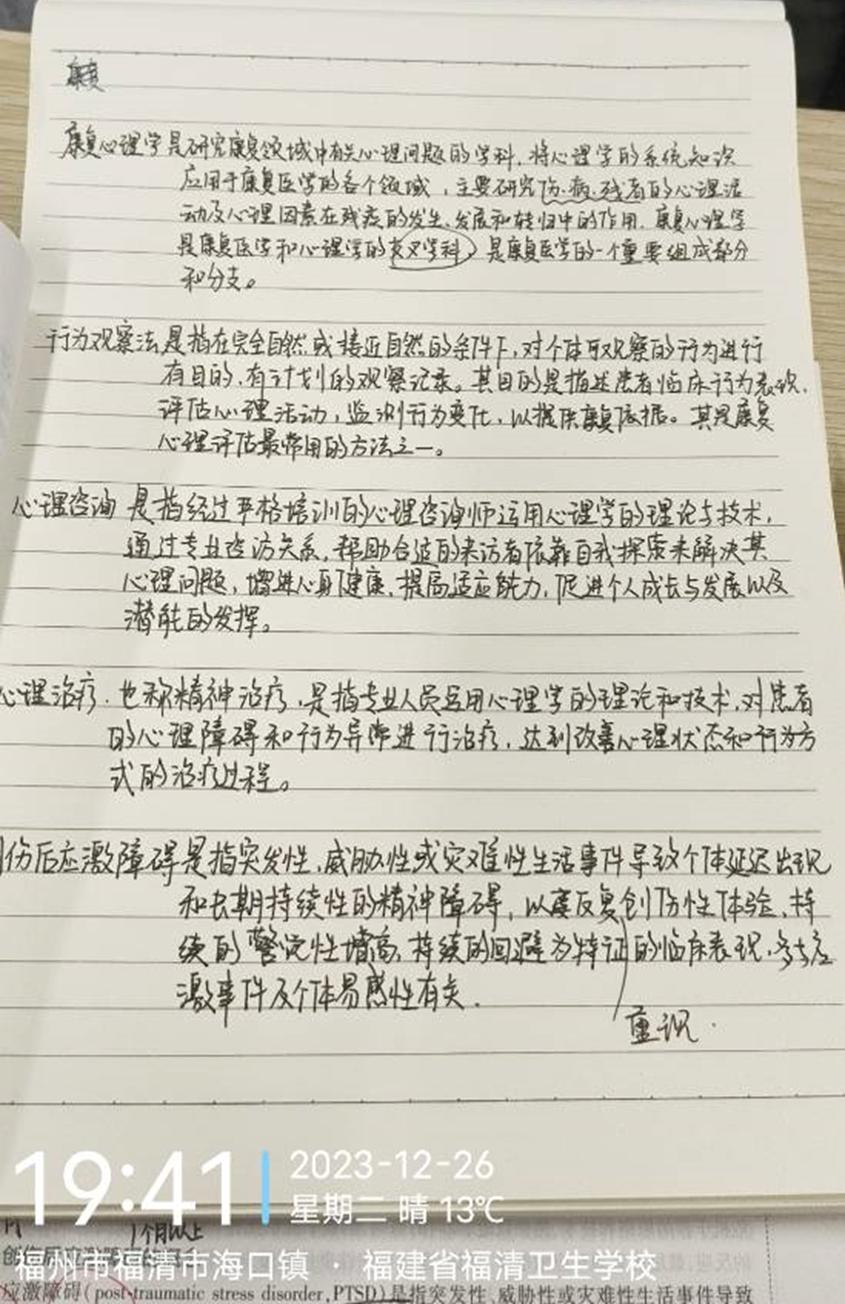 康复
康复心理学是研究康复领域中有关心理问题的学科，将心理学的系统知识
应用于康复医学的各个领域，主要研究伤、病、残者的心理活
动及心理因素在残疾的发生、发展和转归中的作用．康复心理学
是康复医学和心理学的交叉学科，是康复医学的一个重要组成部分
和分支。
行为观察法是指在完全自然或接近自然的条件下，对个体可观察的行为进行
有目的，有计划的观察记录。其目的是描述患者临床行为表现，
评估心理活动，监测行为变化，以提供康复依据。其是康复
心理评估最常用的方法之一。
心理咨询 是指经过严格培训的心理咨询师运用心理学的理论与技术，
通过专业咨访关系，帮助合适的来访者依靠自我探索来解决其
心理问题，增进心身健康，提高适应能力，促进个人成长与发展以及
潜能的发挥。
心理治疗．也称精神治疗，是指专业人员运用心理学的理论和技术，对患者
的心理障碍和行为异常进行治疗，达到改善心理状态和行为方
式的治疗过程。
伤后应激障碍是指突发性、威胁性或灾难性生活事件导致个体延迟出现
和长期持续性的精神障碍，以反复创伤性体验、持
续的警觉性增高、持续的回避为特征的临床表现，多与应
激事件及个体易感性有关．
重现．
19:41
2023-12-26
星期二 晴 13℃
1个月以上
福州市福清市海口镇 · 福建省福清卫生学校
应激障碍(post-traumatic stress disorder,PTSD)是指突发性、威胁性或灾难性生活事件导致